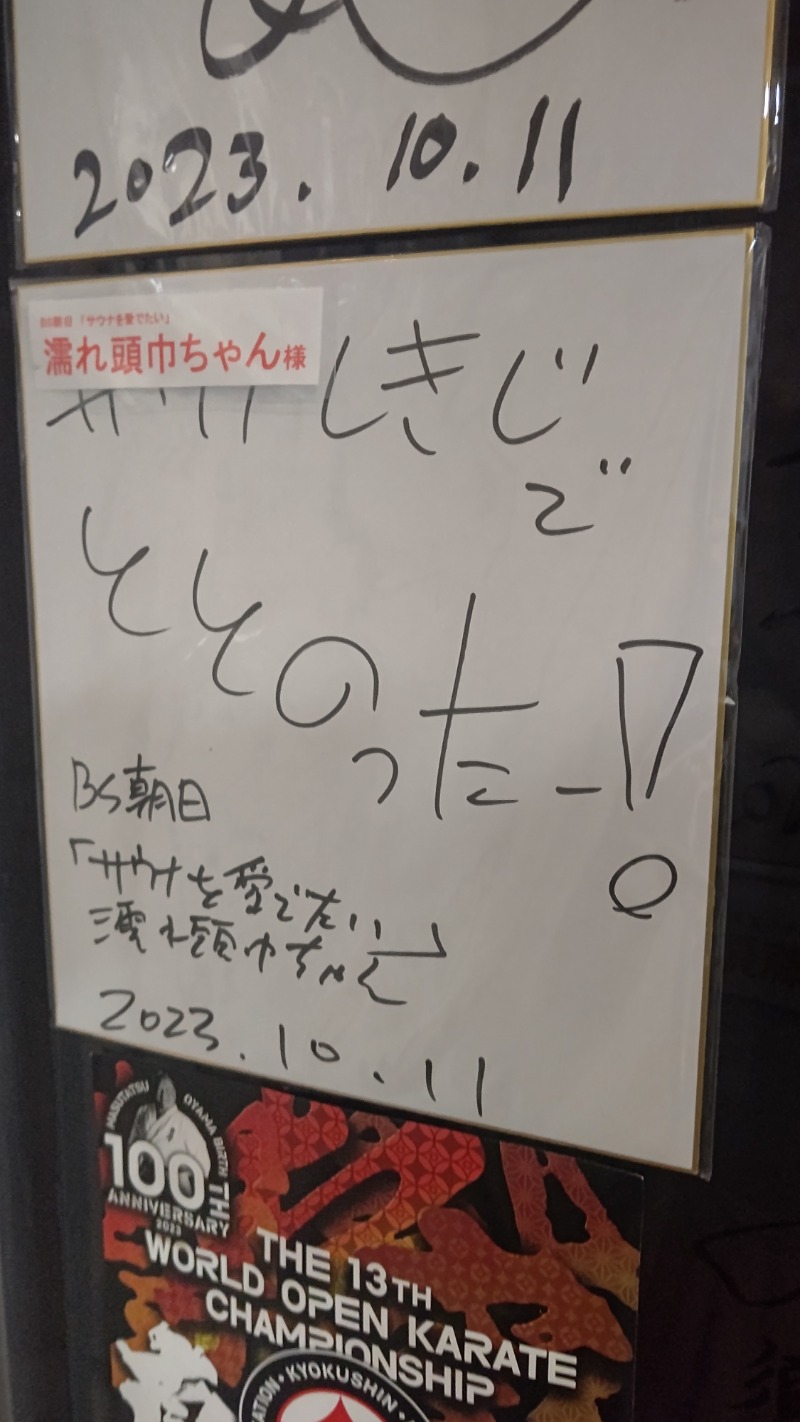 2023. 10. 11
BS朝日 「サウナを愛でたい」
濡れ頭巾ちゃん様
サウナしきじ
で
ととのったー!
BS朝日
「サウナを愛でたい」
濡れ頭巾ちゃん
2023. 10. 11
MASUTATSU OYAMA BIRTH
100TH
ANNIVERSARY
2023
THE 13TH
WORLD OPEN KARATE
CHAMPIONSHIP
KYOKUSHIN